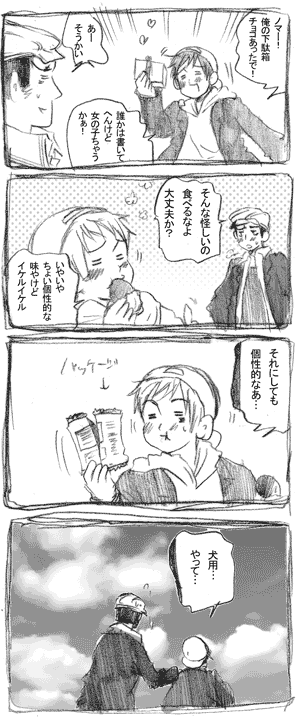 ノマー!
俺の下駄箱
チョコあったで!
あー
そうかい
誰かは書いて
へんけど
女の子ちゃう
かぁ!
そんな怪しいの
食べるなよ
大丈夫か?
いやいや
ちょい個性的な
味やけど
イケルイケル
それにしても
個性的なあ…
パッケージ
犬用…
やって…